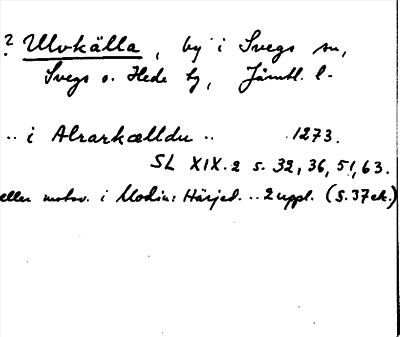 ? Ulvkälla, by i Svegs sn,
Svegs o. Hede tg, Jämtl. l.
.. i Alrarkælldu .. 1273.
SL XIX.2 s. 32, 36, 51, 63.
eller motsv. i Modin: Härjed. .. 2 uppl. (s. 37 ek.)